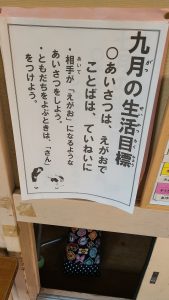 九月の生活目標
〇あいさつは、えがおで
ことばは、ていねいに
・相手が「えがお」になるような
あいさつをしよう。
・ともだちをよぶときは、「さん」
をつけよう。